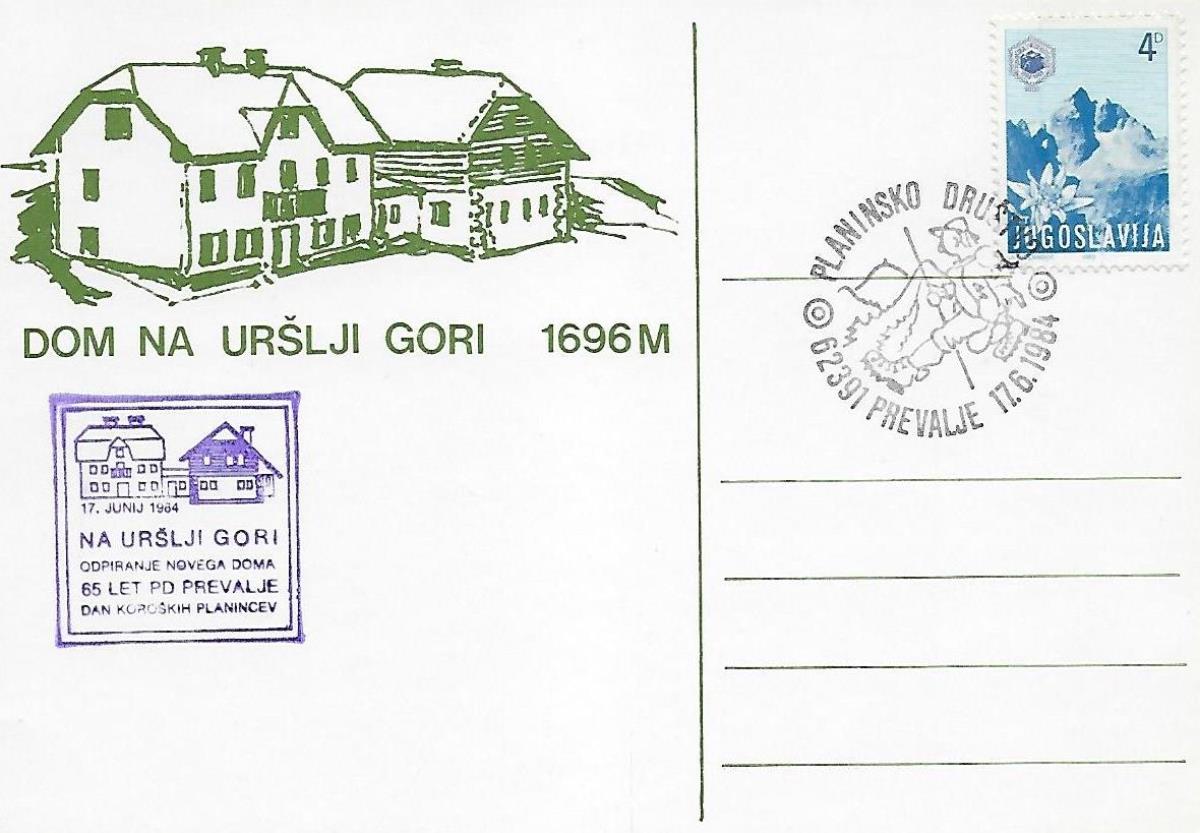 DOM NA URŠLJI GORI 1696 M
17. JUNIJ 1984
NA URŠLJI GORI
ODPIRANJE NOVEGA DOMA
65 LET PD PREVALJE
DAN KOROŠKIH PLANINCEV
4D
JUGOSLAVIJA
PLANINSKO DRUŠTVO
62391 PREVALJE 17.6.1984